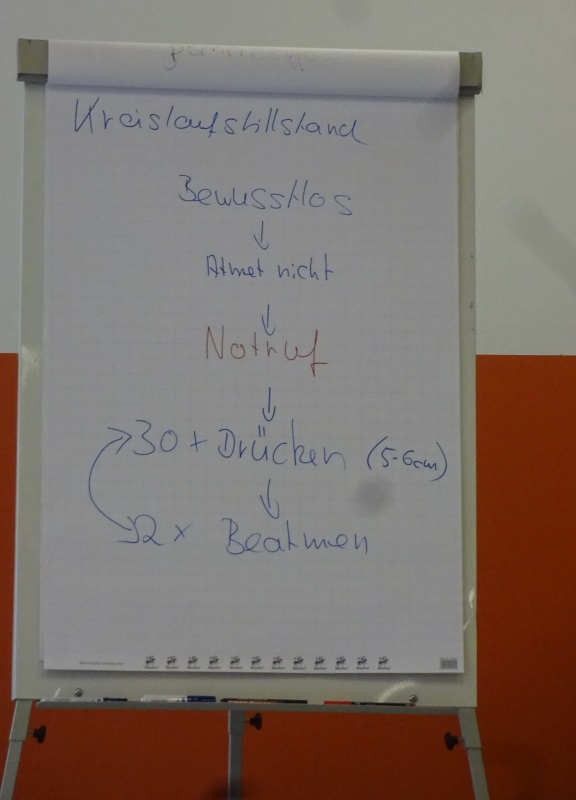 Kreislaufstillstand
Bewusstlos
↓
Atmet nicht
↓
Notruf
↓
30 x Drücken (5-6cm)
↓
2 x Beatmen